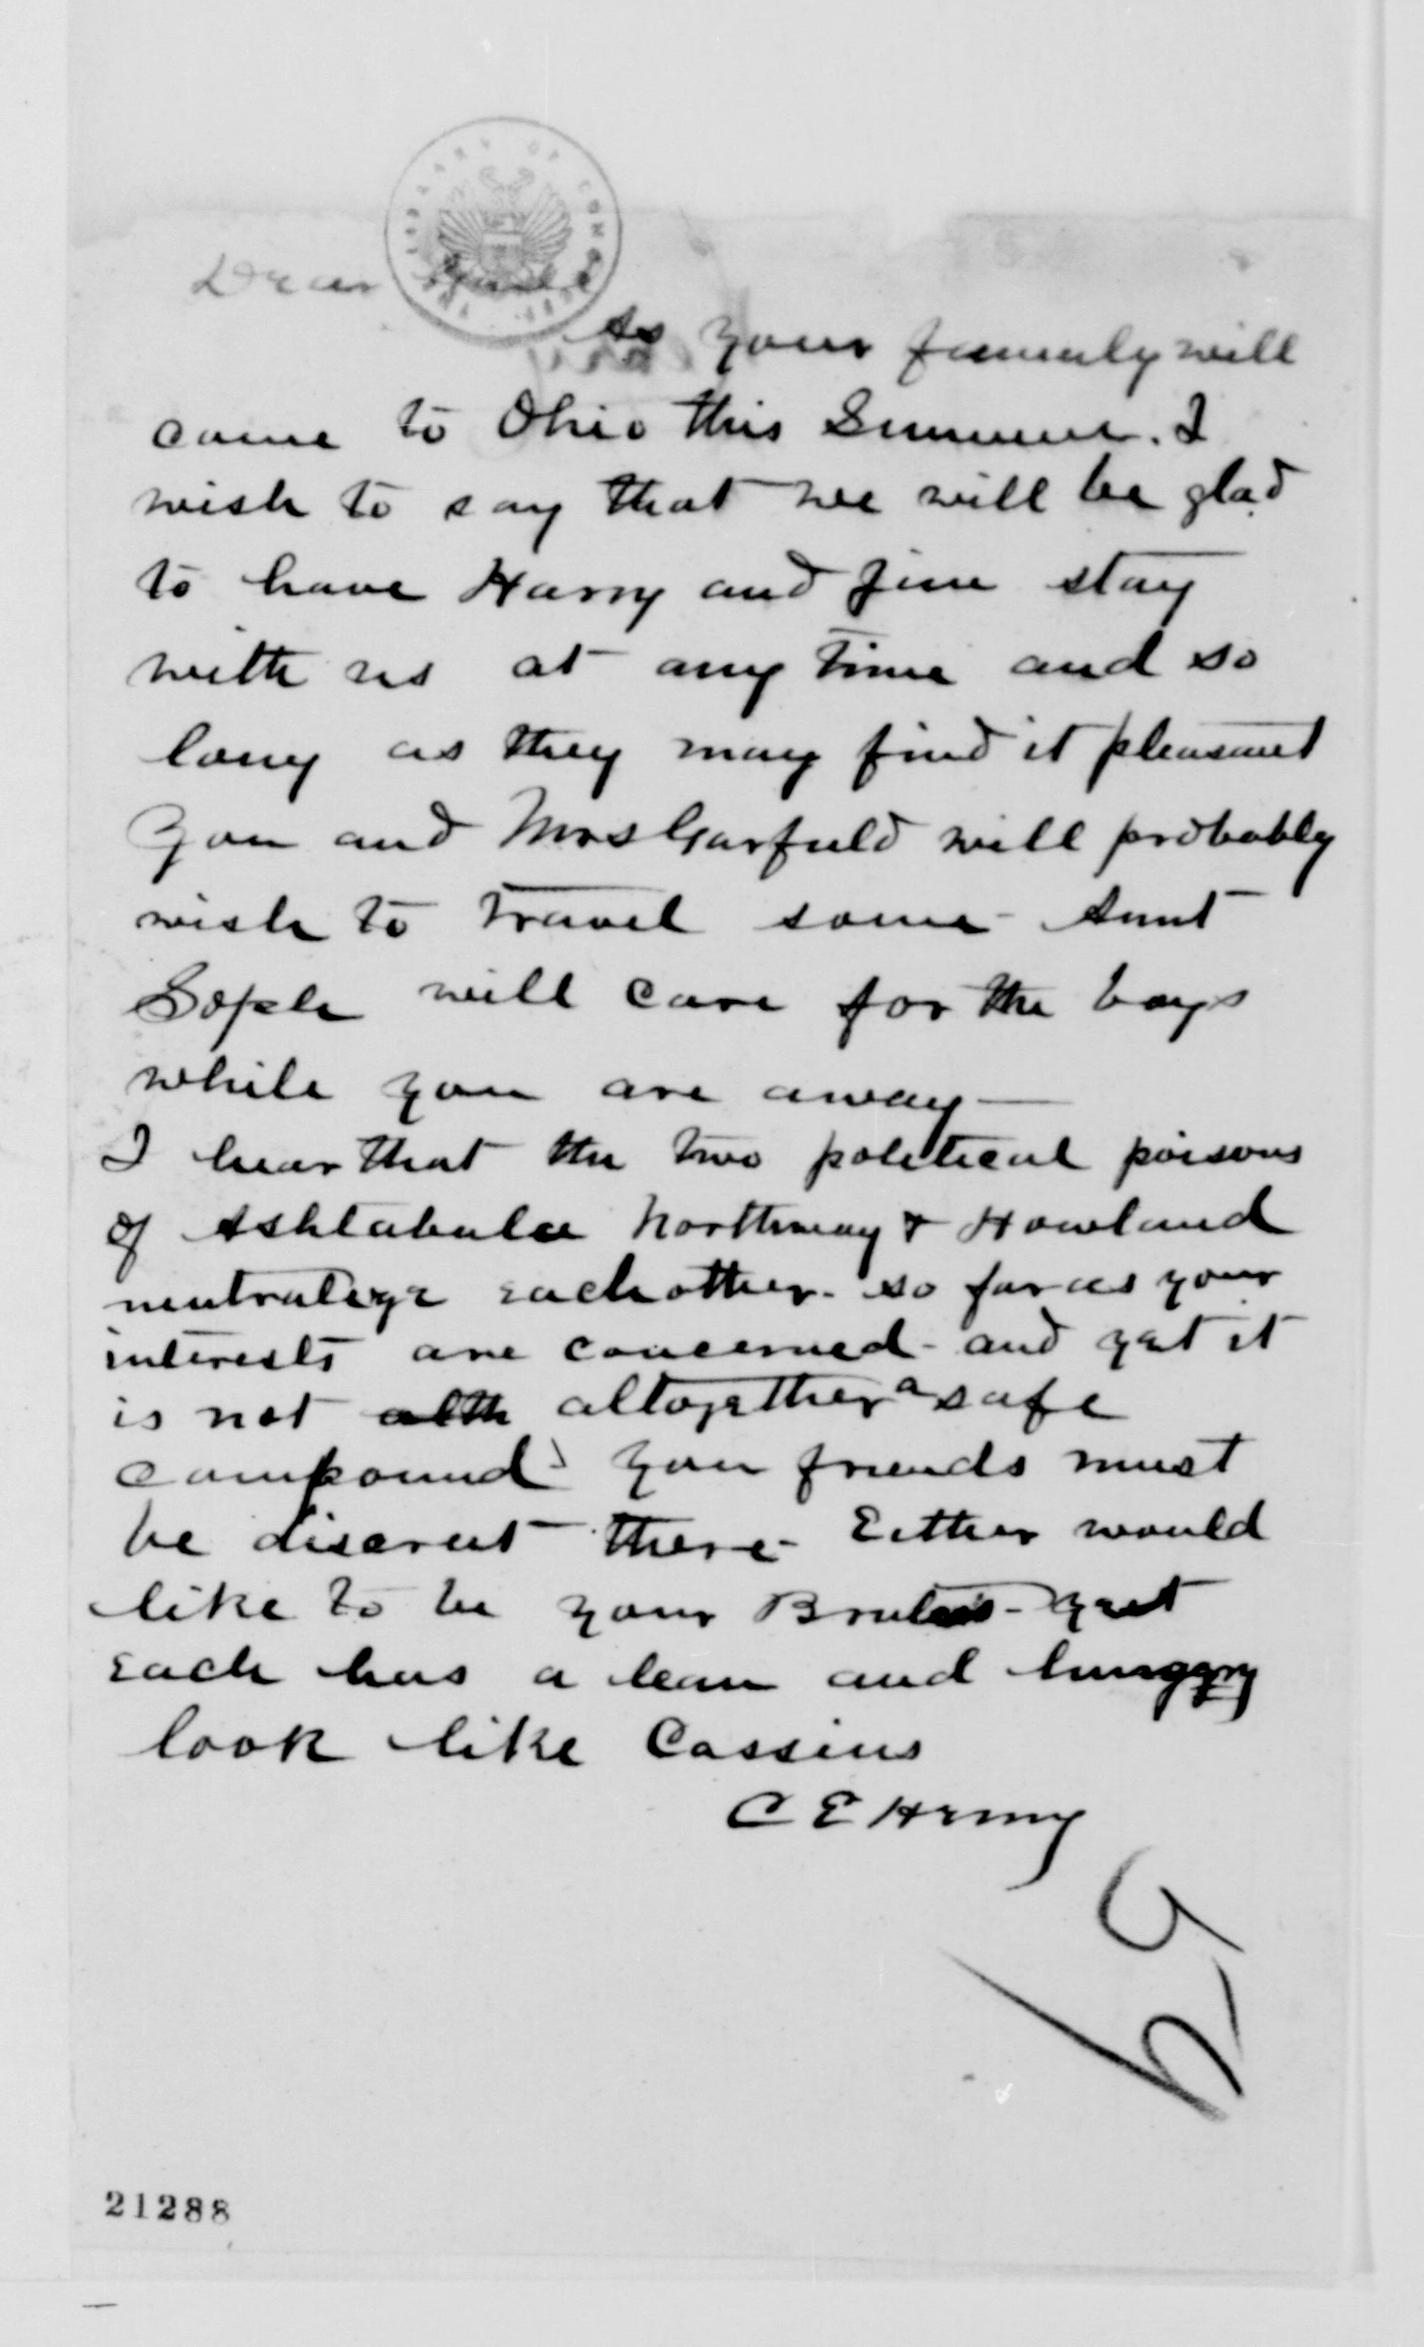 Dear
As your family will
come to Ohio this Summer. I
wish to say that we will be glad
to have Harry and Jim stay
with us at any time and so
long as they may find it pleasant
You and Mrs Garfield will probably
wish to travel some - Aunt
Soph will care for the boys
while you are away —
I hear that the two political poisons
of Ashtabula Northway & Howland
neutralize each other - so far as your
interests are concerned - and yet it
is not alth altogether a safe
compound - your friends must
be discreet there - Either would
like to be your Brutus - yet
each has a lean and hungry
look like Cassius
C E Henry
21288